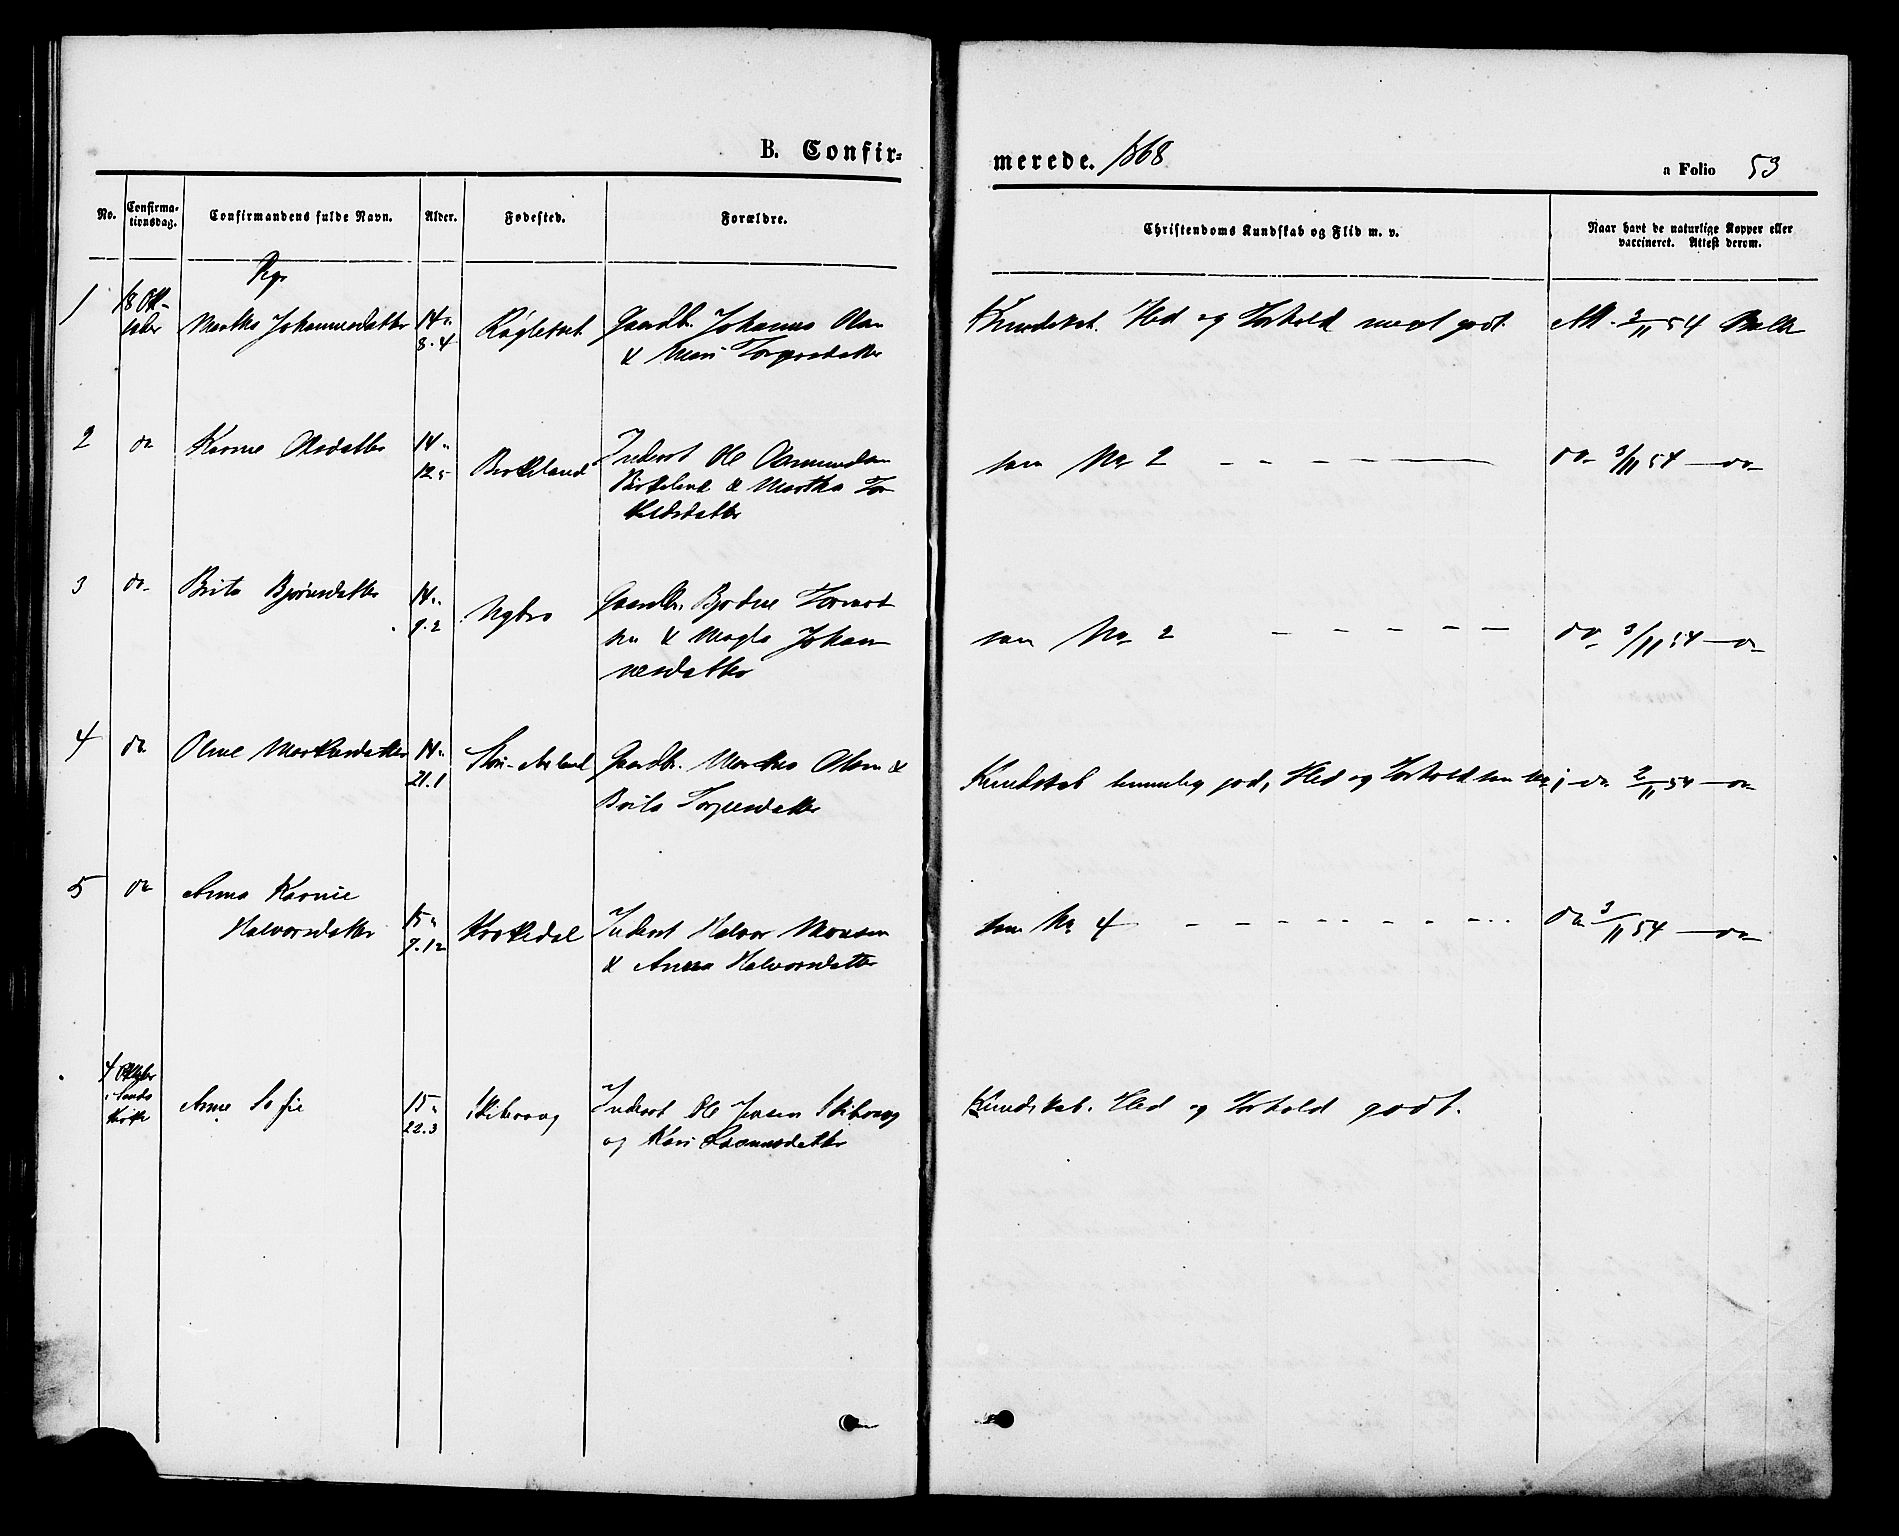 B. Confir-
merede. 1868
a Folio 53
No.
Confirma-
tionsdag.
Confirmandens fulde Navn.
Alder.
Fødested.
Forældre.
Christendoms Kundskab og Flid m. v.
Naar havt de naturlige Kopper eller
vaccineret. Attest derom.
Pgr
1
18 Ok-
tober
Martha Johannesdatter
14
8.4
Gaardbr. Johannes Olsen
&
Kundskab. Flid og Forhold meget godt.
Att. 3/11 54
2
do
Karine Olesdatter
14
12.5
Birkeland
Inderst Ole Aamundsen
Birkeland & Martha Tor
kildsdatter
som No 2
do 3/11 54 — do
3
do
Brita Bjørnsdatter
14
9.2
Nybro
Gaardbr.
sen & Magla Johan
nesdatter
som No 2
do 3/11 54 — do
4
do
Oline Markusdatter
14
21.1
Gaardbr. Markus Olsen &
Brita Torgersdatter
Kundskab temmelig god, Flid og Forhold som No 1
do 2/11 54 — do
5
do
Anna Karine
Halvorsdatter
15
7.12
Krokedal
Inderst Halvor Monsen
& Anna Halvorsdatter
som No 4
do 3/11 54 — do
4 Oktober
i Sands
Kirke
Anne Sofie
15
22.3
Skibevog
Inderst Ole Jensen Skibevog
og Kari Rasmusdatter
Kundskab. Flid og Forhold godt.